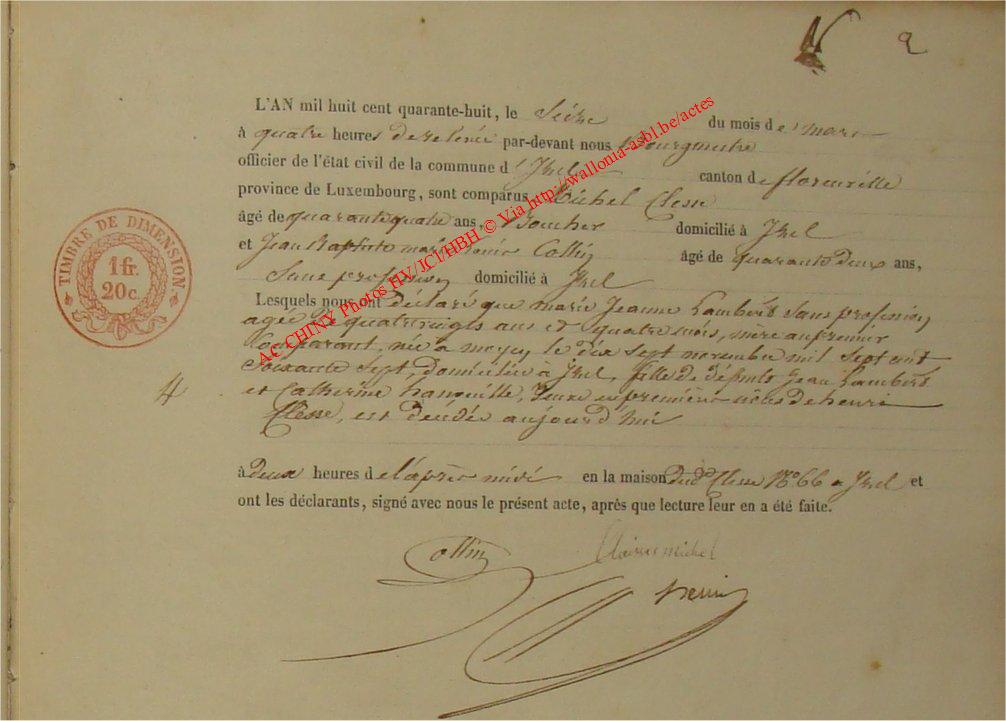 N 2
L'AN mil huit cent quarante-huit, le Seize du mois de mars
à quatre heures de relevée par-devant nous Bourgmestre
officier de l'état civil de la commune d'Izel canton de florenville
province de Luxembourg, sont comparus Michel Clesse
âgé de quarante quatre ans, domicilié à Izel
et Jean Baptiste marie Collin âgé de quarante deux ans,
Sans profession domicilié à Izel
Lesquels nous ont déclaré que marie Jeanne Lambert sans profession
agée de quatrevingts ans et quatre mois, mère au premier
Comparant, née à moyen le dix sept novembre mil Sept cent
Soixante Sept, domiciliée à Izel, fille de défunts Jean Lambert
et Catherine veuve en premières noces de henri
Clesse, est decedée aujourd'hui
4
à deux heures de l'après midi en la maison dud. Clesse No 66 a Izel et
ont les déclarants, signé avec nous le présent acte, après que lecture leur en a été faite.
Collin michel
TIMBRE DE DIMENSION
1 fr.
20 c.
AC CHINY Photos HV/JCI/HBH © Via http://wallonia-asbl.be/actes